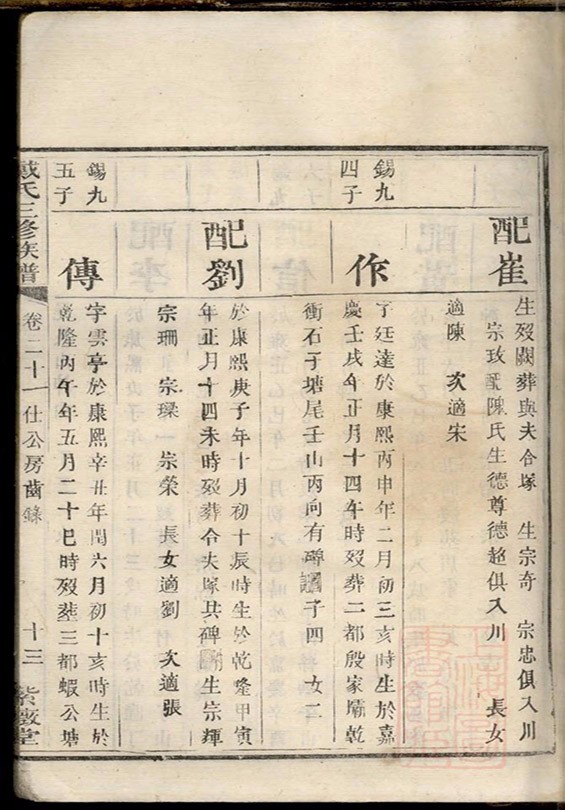 配崔
生歿闕葬與夫合塚 生宗奇 宗忠俱入川
宗玫配陳氏生德尊德超俱入川 長女
適陳 次適宋
錫九
四子
作
字廷達於康熙丙申年二月初三亥時生於嘉
慶壬戌年正月十四午時歿葬二都殷家壩乾
衝石子塘尾壬山丙向有碑 子四 女二
配劉
於康熙庚子年十月初十辰時生於乾隆甲寅
年正月十四未時歿葬合夫塚共碑 生宗輝
宗珊 宗璨 宗榮 長女適劉 次適張
錫九
五子
傳
字雲亭於康熙辛丑年閏六月初十亥時生於
乾隆丙午年五月二十巳時歿葬三都蝦公塘
戴氏三修族譜 卷二十一 仕公房齒錄 十三 紫薇堂